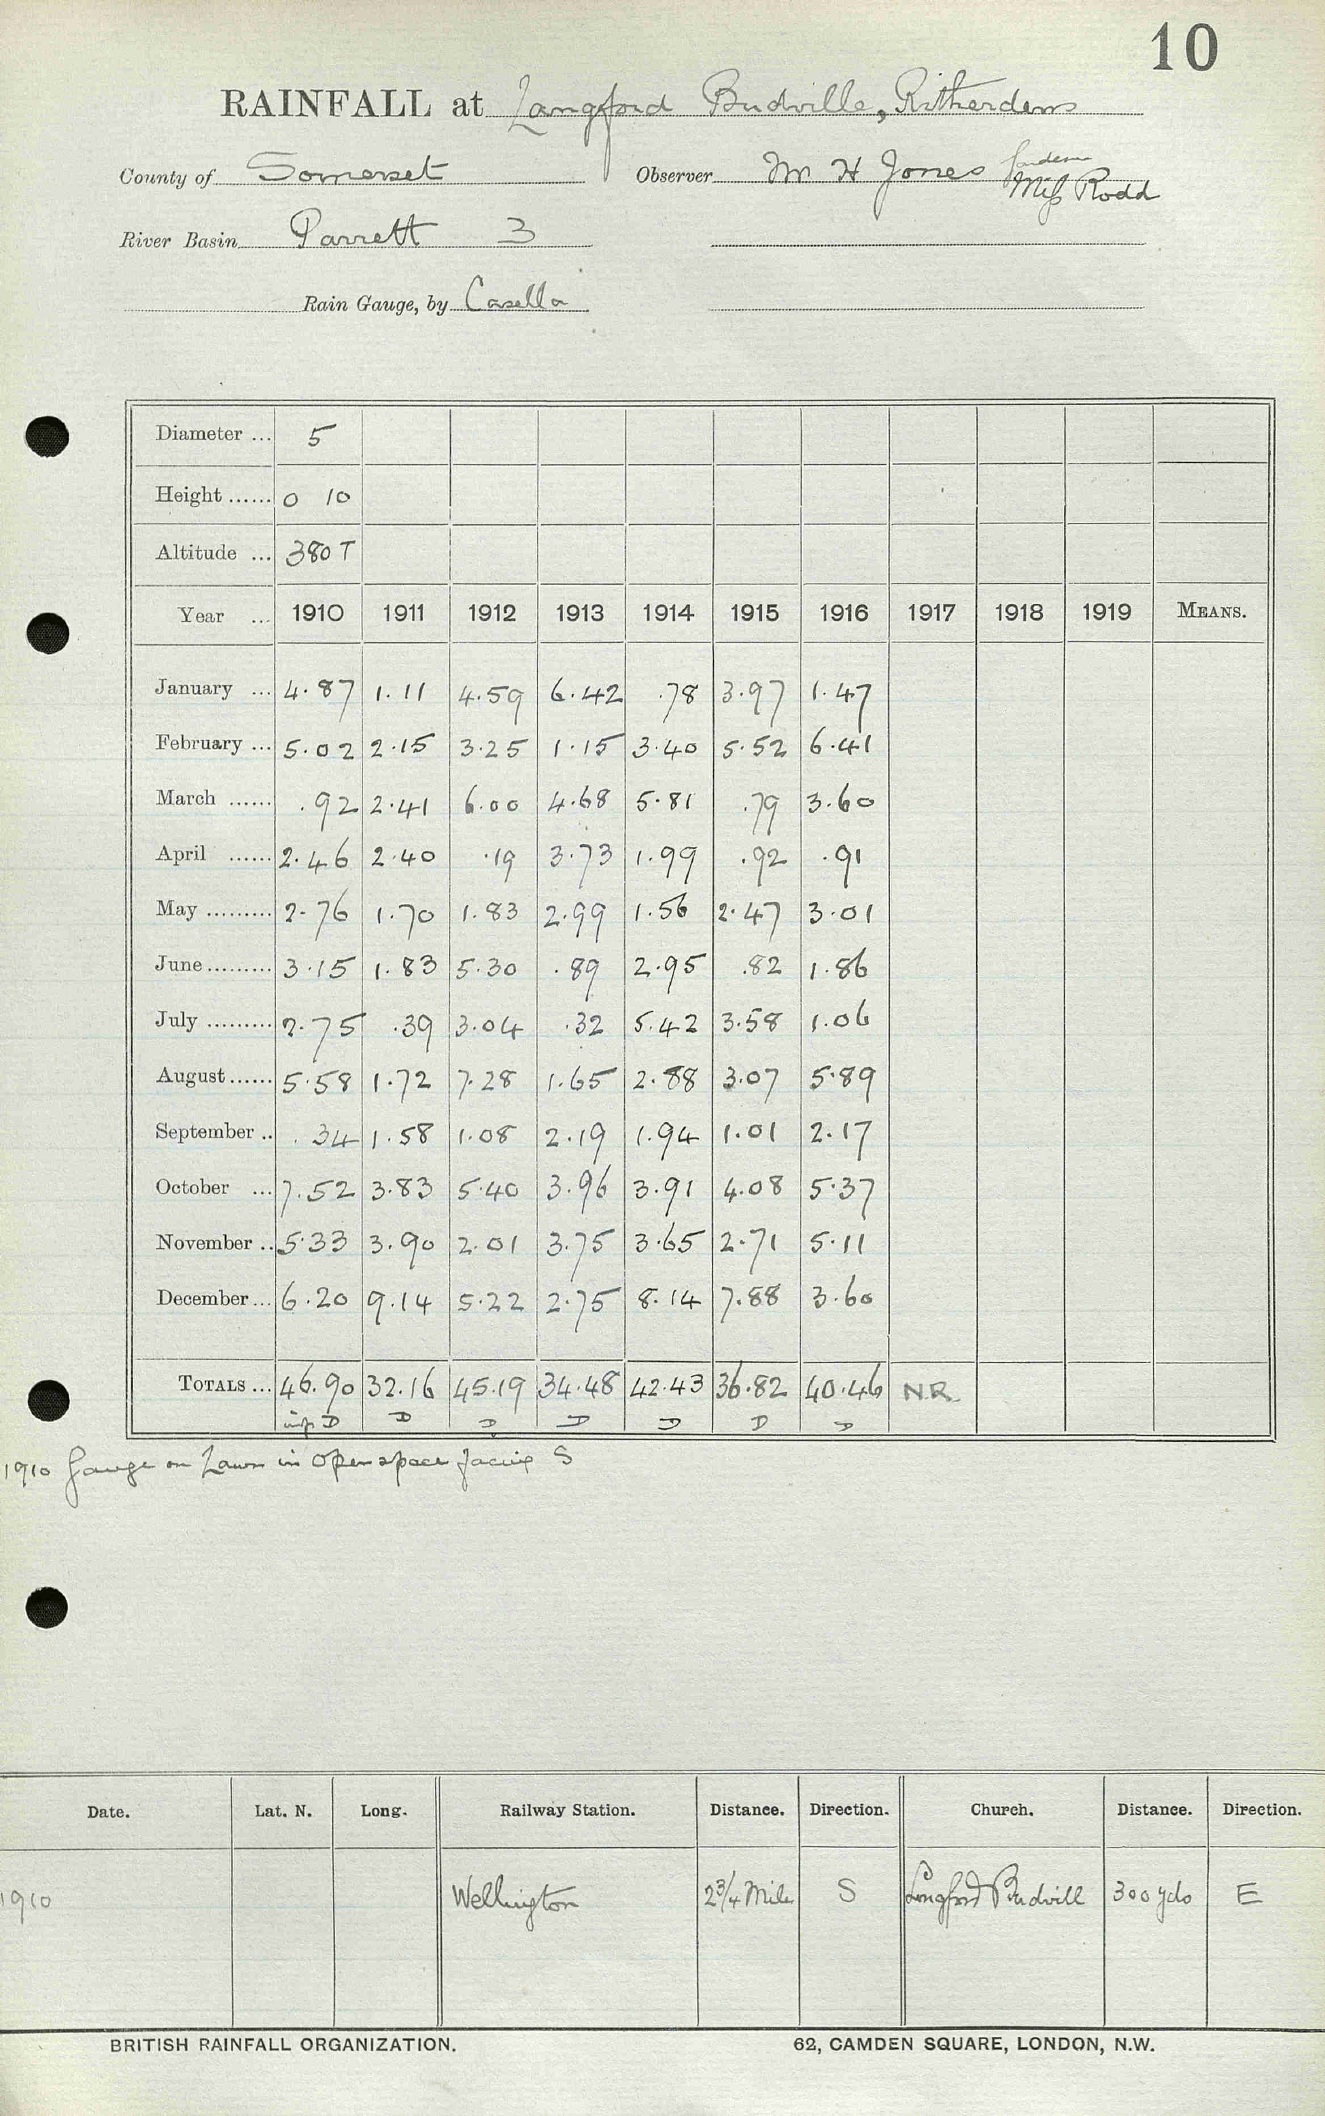 10
RAINFALL at Langford Budville, Ritherdens
County of Somerset Observer Mr H Jones gardener
Miss Rodd
River Basin Parrett 3
Rain Gauge, by Casella
Diameter ... 5
Height ...... 0 10
Altitude ... 380 T
Year ... 1910 1911 1912 1913 1914 1915 1916 1917 1918 1919 MEANS.
January ... 4.87 1.11 4.59 6.42 .78 3.97 1.47
February ... 5.02 2.15 3.25 1.15 3.40 5.52 6.41
March ...... .92 2.41 6.00 4.68 5.81 .79 3.60
April ...... 2.46 2.40 .19 3.73 1.99 .92 .91
May ......... 2.76 1.70 1.83 2.99 1.56 2.47 3.01
June ......... 3.15 1.83 5.30 .89 2.95 .82 1.86
July ......... 2.75 .39 3.04 .32 5.42 3.58 1.06
August ...... 5.58 1.72 7.28 1.65 2.88 3.07 5.89
September .. .34 1.58 1.08 2.19 1.94 1.01 2.17
October ... 7.52 3.83 5.40 3.96 3.91 4.08 5.37
November .. 5.33 3.90 2.01 3.75 3.65 2.71 5.11
December ... 6.20 9.14 5.22 2.75 8.14 7.88 3.60
TOTALS ... 46.90 32.16 45.19 34.48 42.43 36.82 40.46 N.R.
D D D D D D D
1910 Gauge on Lawn in open space facing S
Date. Lat. N. Long. Railway Station. Distance. Direction. Church. Distance. Direction.
1910 Wellington 2 3/4 Miles S Langford Budvill 300 yds E
BRITISH RAINFALL ORGANIZATION. 62, CAMDEN SQUARE, LONDON, N.W.